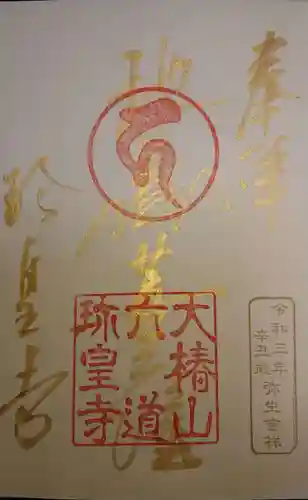 奉拝
令和三年
辛丑歳
弥生吉祥
大椿山
六道
珍皇寺
珍皇寺